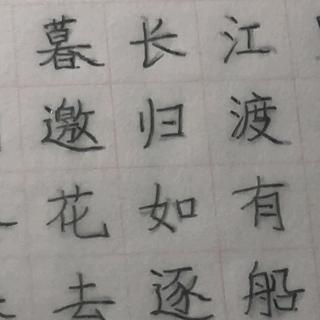 暮长江
邀归渡
花如有
去逐船